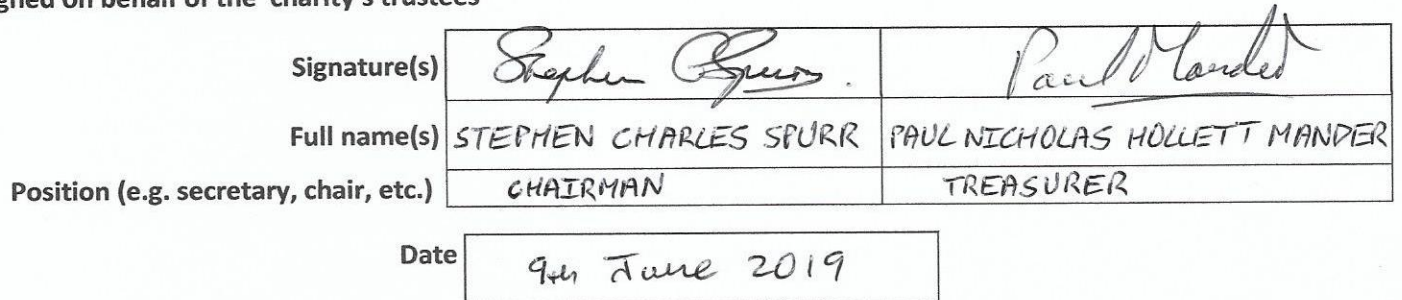 gned on behalf of the charity's trustees
Signature(s) Stephen C Spurr. Paul Mander
Full name(s) STEPHEN CHARLES SPURR PAUL NICHOLAS HOLLETT MANDER
Position (e.g. secretary, chair, etc.) CHAIRMAN TREASURER
Date 9th June 2019